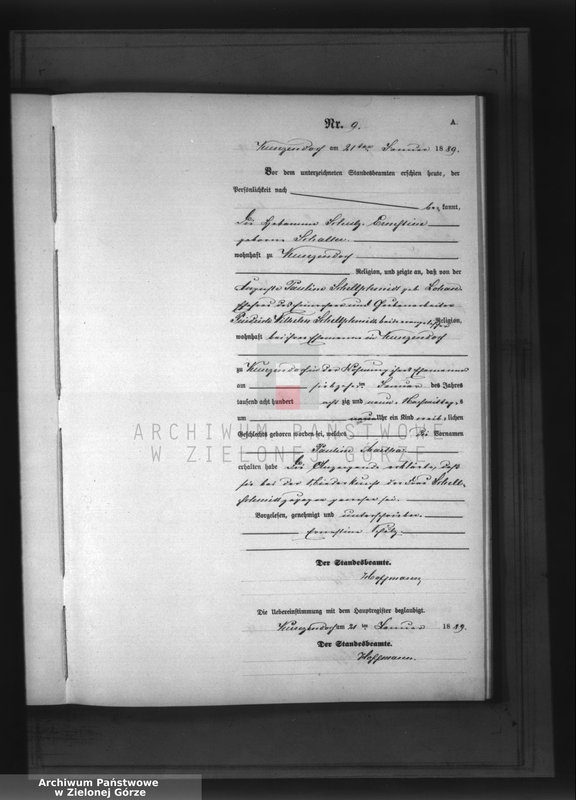 Nr. 9.
A.
Kunzendorf am 21 ten Januar 1889.
Vor dem unterzeichneten Standesbeamten erschien heute, der
Persönlichkeit nach
be kannt,
die Hebamme Ernestine
geborene
wohnhaft zu Kunzendorf
Religion, und zeigte an, daß von der
Auguste Pauline Schellschmidt geb.
Ehefrau des
Friedrich Wilhelm Schellschmidt beide evangelischer Religion,
wohnhaft bei ihrem Ehemanne in Kunzendorf
zu Kunzendorf in der Wohnung ihres Ehemannes
am siebzehnten Januar des Jahres
tausend acht hundert acht zig und neun, Nachmittag s
um Uhr ein Kind weib lichen
Geschlechts geboren worden sei, welches die Vornamen
Pauline Martha
erhalten habe. Die Anzeigende erklärte, daß
sie bei der Niederkunft der Frau Schell-
schmidt zugegen gewesen sei.
Vorgelesen, genehmigt und unterschrieben.
Ernestine
Der Standesbeamte.
Hoffmann
Die Uebereinstimmung mit dem Hauptregister beglaubigt.
Kunzendorf am 21 ten Januar 1889.
Der Standesbeamte.
Hoffmann.
ARCHIWUM PAŃSTWOWE
W ZIELONEJ GÓRZE
Archiwum Państwowe
w Zielonej Górze